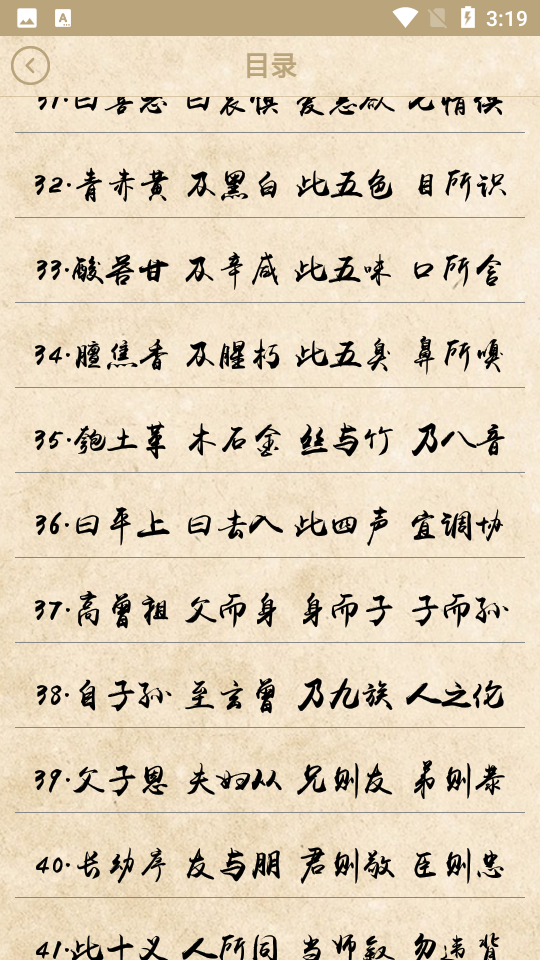 3:19
目录
31·曰喜怒 曰哀惧 爱恶欲 七情俱
32·青赤黄 及黑白 此五色 目所识
33·酸苦甘 及辛咸 此五味 口所含
34·膻焦香 及腥朽 此五臭 鼻所嗅
35·匏土革 木石金 丝与竹 乃八音
36·曰平上 曰去入 此四声 宜调协
37·高曾祖 父而身 身而子 子而孙
38·自子孙 至玄曾 乃九族 人之伦
39·父子恩 夫妇从 兄则友 弟则恭
40·长幼序 友与朋 君则敬 臣则忠
41·此十义 人所同 当师叙 勿违背